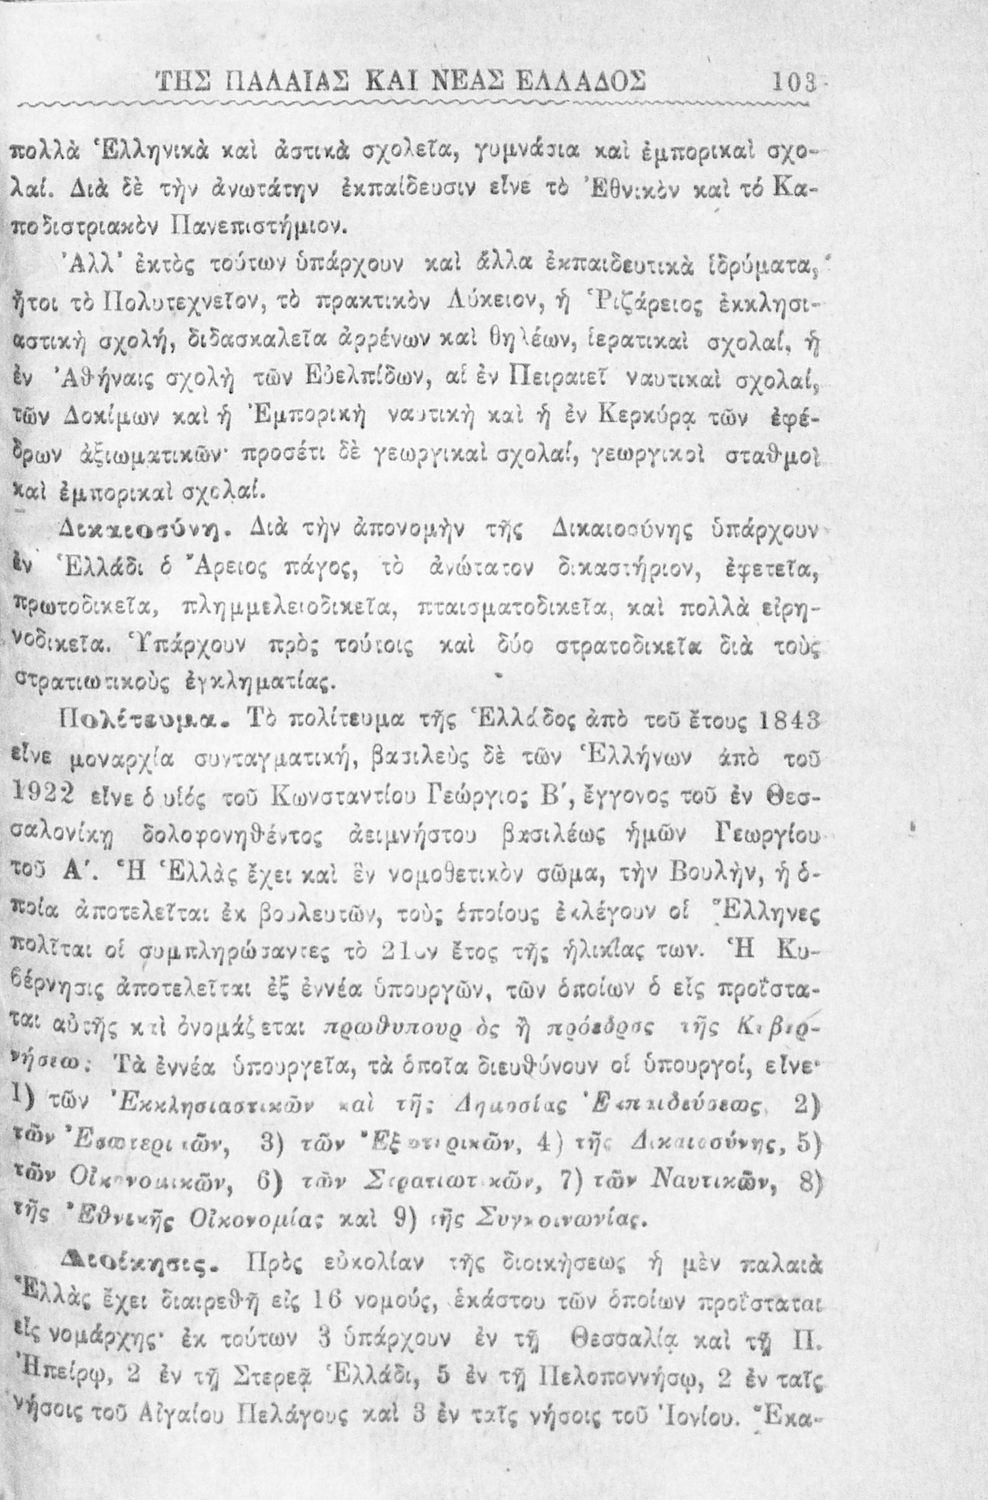 ΤΗΣ ΠΑΛΑΙΑΣ ΚΑΙ ΝΕΑΣ ΕΛΛΑΔΟΣ 103
πολλὰ Ἑλληνικὰ καὶ ἀστικὰ σχολεῖα, γυμνάσια καὶ ἐμπορικαὶ σχο-
λαί. Διὰ δὲ τὴν ἀνωτάτην ἐκπαίδευσιν εἶνε τὸ Ἐθνικὸν καὶ τό Κα-
ποδιστριακὸν Πανεπιστήμιον.
Ἀλλ' ἐκτὸς τούτων ὑπάρχουν καὶ ἄλλα ἐκπαιδευτικὰ ἱδρύματα,
ἤτοι τὸ Πολυτεχνεῖον, τὸ πρακτικὸν Λύκειον, ἡ Ῥιζάρειος ἐκκλησι-
αστικὴ σχολή, διδασκαλεῖα ἀρρένων καὶ θηλέων, ἱερατικαὶ σχολαί, ἡ
ἐν Ἀθήναις σχολὴ τῶν Εὐελπίδων, αἱ ἐν Πειραιεῖ ναυτικαὶ σχολαί,
τῶν Δοκίμων καὶ ἡ Ἐμπορικὴ ναυτικὴ καὶ ἡ ἐν Κερκύρᾳ τῶν ἐφέ-
δρων ἀξιωματικῶν· προσέτι δὲ γεωργικαὶ σχολαί, γεωργικοὶ σταθμοὶ
καὶ ἐμπορικαὶ σχολαί.
Δικαιοσύνη. Διὰ τὴν ἀπονομὴν τῆς Δικαιοσύνης ὑπάρχουν
ἐν Ἑλλάδι ὁ Ἄρειος πάγος, τὸ ἀνώτατον δικαστήριον, ἐφετεῖα,
πρωτοδικεῖα, πλημμελειοδικεῖα, πταισματοδικεῖα, καὶ πολλὰ εἰρη-
νοδικεῖα. Ὑπάρχουν πρὸς τούτοις καὶ δύο στρατοδικεῖα διὰ τοὺς
στρατιωτικοὺς ἐγκληματίας.
Πολίτευμα. Τὸ πολίτευμα τῆς Ἑλλάδος ἀπὸ τοῦ ἔτους 1843
εἶνε μοναρχία συνταγματική, βασιλεὺς δὲ τῶν Ἑλλήνων ἀπὸ τοῦ
1922 εἶνε ὁ υἱός τοῦ Κωνσταντίου Γεώργιος Β', ἔγγονος τοῦ ἐν Θεσ-
σαλονίκῃ δολοφονηθέντος ἀειμνήστου βασιλέως ἡμῶν Γεωργίου
τοῦ Α'. Ἡ Ἑλλὰς ἔχει καὶ ἓν νομοθετικὸν σῶμα, τὴν Βουλὴν, ἡ ὁ-
ποία ἀποτελεῖται ἐκ βουλευτῶν, τοὺς ὁποίους ἐκλέγουν οἱ Ἕλληνες
πολῖται οἱ συμπληρώσαντες τὸ 21ον ἔτος τῆς ἡλικίας των. Ἡ Κυ-
βέρνησις ἀποτελεῖται ἐξ ἐννέα ὑπουργῶν, τῶν ὁποίων ὁ εἷς προΐστα-
ται αὐτῆς καὶ ὀνομάζεται πρωθυπουργὸς ἢ πρόεδρος τῆς Κυβερ-
νήσεως. Τὰ ἐννέα ὑπουργεῖα, τὰ ὁποῖα διευθύνουν οἱ ὑπουργοί, εἶνε·
1) τῶν Ἐκκλησιαστικῶν καὶ τῆς Δημοσίας Ἐκπαιδεύσεως, 2)
τῶν Ἐσωτερικῶν, 3) τῶν Ἐξωτερικῶν, 4) τῆς Δικαιοσύνης, 5)
τῶν Οἰκονομικῶν, 6) τῶν Στρατιωτικῶν, 7) τῶν Ναυτικῶν, 8)
τῆς Ἐθνικῆς Οἰκονομίας καὶ 9) τῆς Συγκοινωνίας.
Διοίκησις. Πρὸς εὐκολίαν τῆς διοικήσεως ἡ μὲν παλαιὰ
Ἑλλὰς ἔχει διαιρεθῆ εἰς 16 νομούς, ἑκάστου τῶν ὁποίων προΐσταται
εἷς νομάρχης· ἐκ τούτων 3 ὑπάρχουν ἐν τῇ Θεσσαλίᾳ καὶ τῇ Π.
Ἠπείρῳ, 2 ἐν τῇ Στερεᾷ Ἑλλάδι, 5 ἐν τῇ Πελοποννήσῳ, 2 ἐν ταῖς
νήσοις τοῦ Αἰγαίου Πελάγους καὶ 3 ἐν ταῖς νήσοις τοῦ Ἰονίου. Ἕκα-